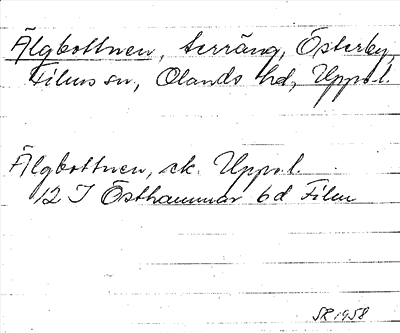 Älgbottnen, terräng, Österby,
Films sn, Olands hd, Uppsl.
Älgbottnen, ek. Uppsl.
12 I Östhammar 6d Film
SR 1958